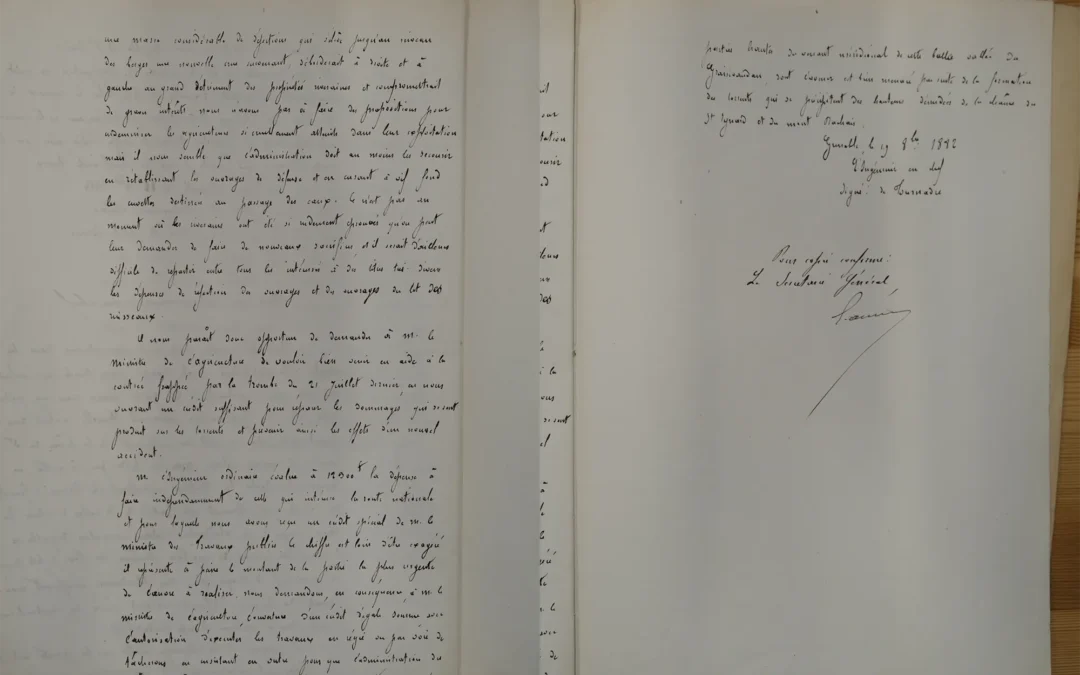 une masse considérable de déjections qui solée jusqu'au niveau
des berges, une nouvelle crue survenant, déborderait à droite et à
gauche au grand détriment des propriétés riveraines et compromettrait
de graves intérêts. nous n'avons pas à faire des propositions pour
indemniser les agriculteurs si cruellement atteints dans leur exploitation
mais il nous semble que l'administration doit au moins les secourir
en rétablissant les ouvrages de défense et en curant à vif fond
les cuvettes destinées au passage des eaux. Ce n'est pas au
moment où les riverains ont été si rudement éprouvés qu'on peut
leur demander de faire de nouveaux sacrifices, et il serait d'ailleurs
difficile de répartir entre tous les intéressés à des titres très divers
les dépenses de réfection des ouvrages et des curages du lit des
ruisseaux.
Il nous paraît donc opportun de demander à M. le
ministre de l'agriculture de vouloir bien venir en aide à la
contrée frappée par la trombe du 21 Juillet dernier en nous
ouvrant un crédit suffisant pour réparer les dommages qui se sont
produit sur les torrents et prévenir ainsi les effets d'un nouvel
accident.
M. l'Ingénieur ordinaire évalue à 12500f la dépense à
faire indépendamment de celle qui intéresse la route nationale
et pour laquelle nous avons reçu un crédit spécial de M. le
ministre des Travaux publics. Ce chiffre est loin d'être exagéré
il représente à peine le montant de la partie la plus urgente
de l'œuvre à réaliser, nous demandons, en conséquence, à M. le
ministre de l'agriculture, l'ouverture d'un crédit d'égale somme avec
l'autorisation d'exécuter les travaux en régie ou par voie de
tâcherons en insistant en outre pour que l'administration des
parties hautes du versant méridional de cette belle vallée du
Graisivaudan sont chaque
des torrents qui se précipitent des hauteurs dénudées de la chaîne du
St Eynard et du mont Rachais.
Grenoble, le 19 8bre 1882
L'Ingénieur en chef
signé: de Tournadre
Pour copie conforme:
Le Secrétaire Général,